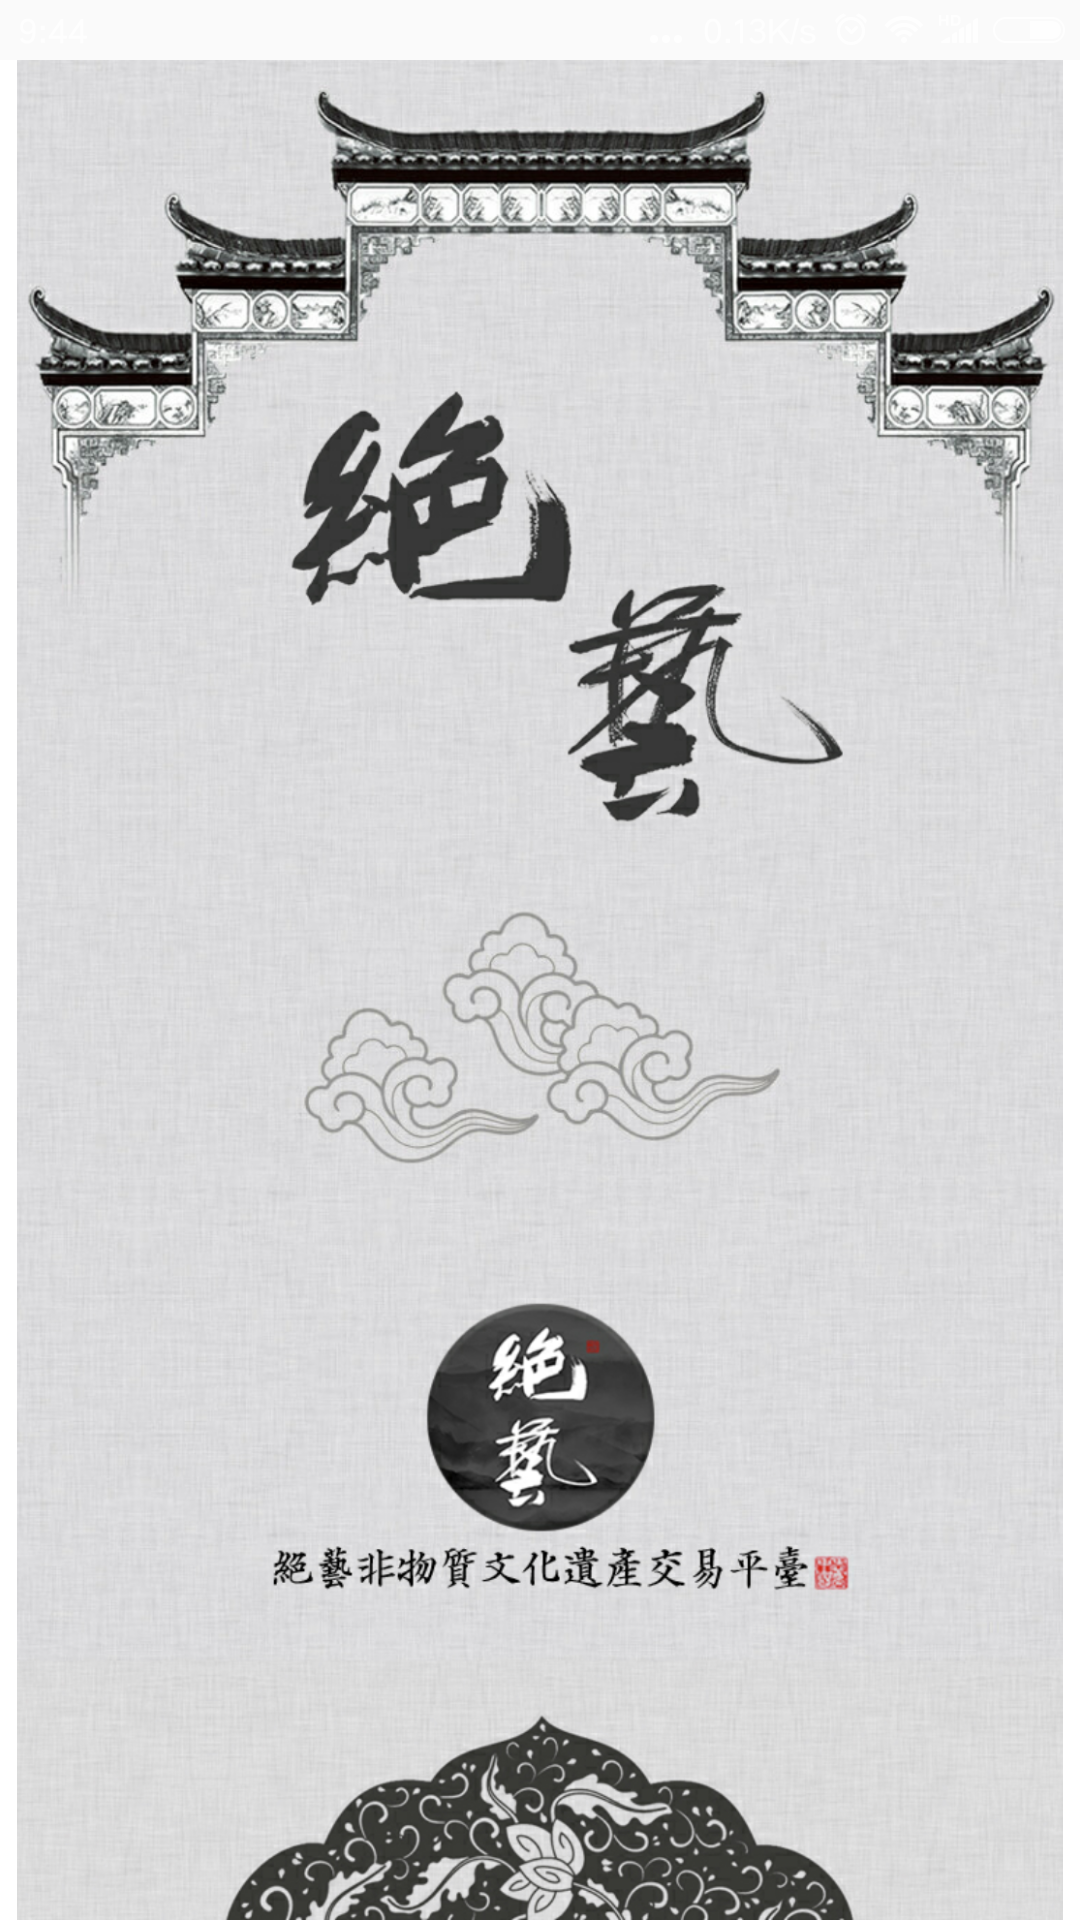 9:44
... 0.13K/s HD
絕
藝
絕
藝
絕藝非物質文化遺產交易平臺